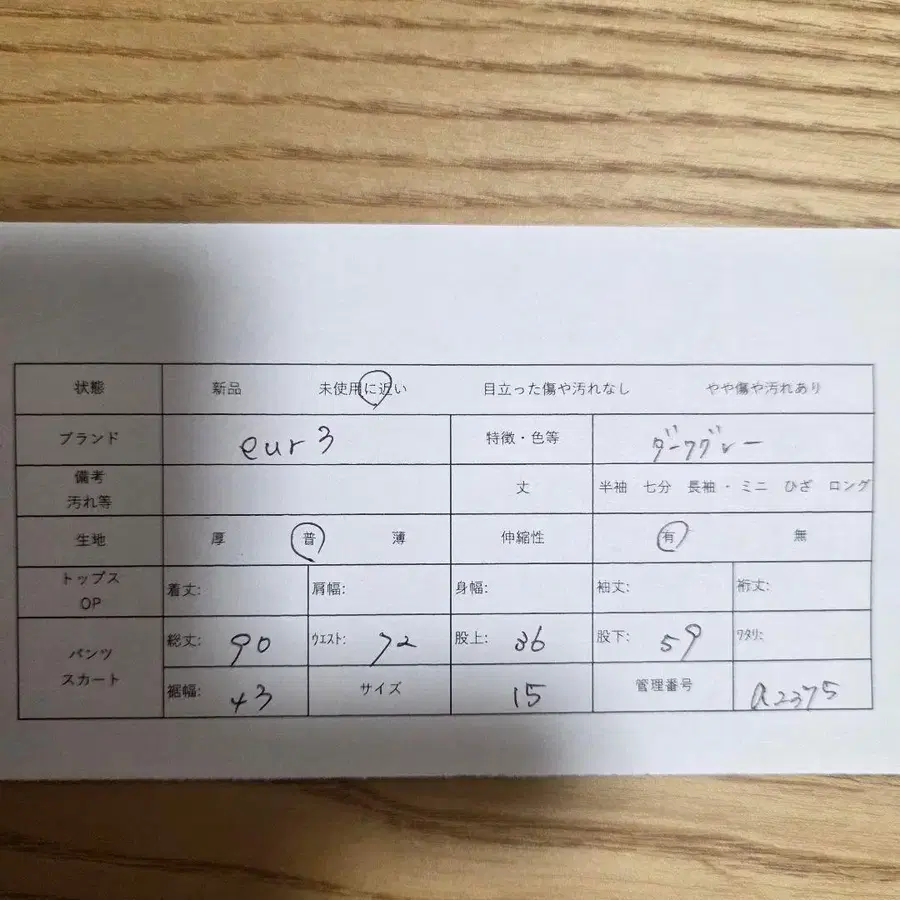 状態 新品 未使用に近い 目立った傷や汚れなし やや傷や汚れあり
ブランド eur3 特徴・色等 ダークグレー
備考 汚れ等 丈 半袖 七分 長袖・ミニ ひざ ロング
生地 厚 普 薄 伸縮性 有 無
トップス OP 着丈: 肩幅: 身幅: 袖丈: 裄丈:
パンツ スカート 総丈: 90 ウエスト: 72 股上: 36 股下: 59 ワタリ:
裾幅: 43 サイズ 15 管理番号 a2375